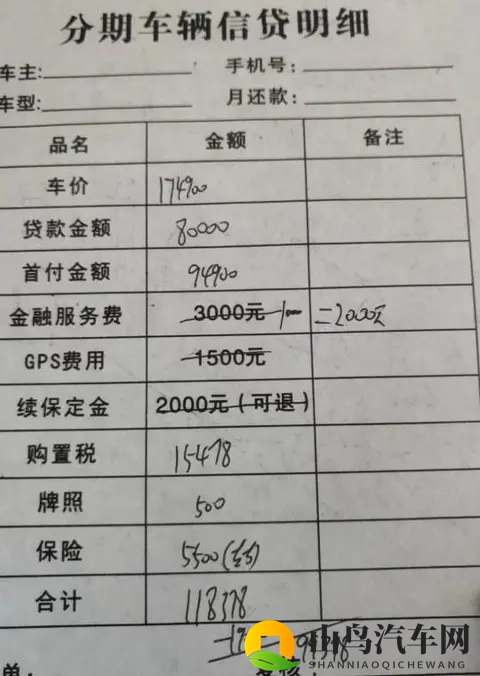 分期车辆信贷明细
车主: 手机号:
车型: 月还款:
品名 金额 备注
车价 174900
贷款金额 80000
首付金额 94900
金融服务费 3000元 -1000 =2000元
GPS费用 1500元
续保定金 2000元(可退)
购置税 15478
牌照 500
保险 5500
合计 118378
山鸟汽车网
SHANNIAOQICHEWANG
单: 复核: